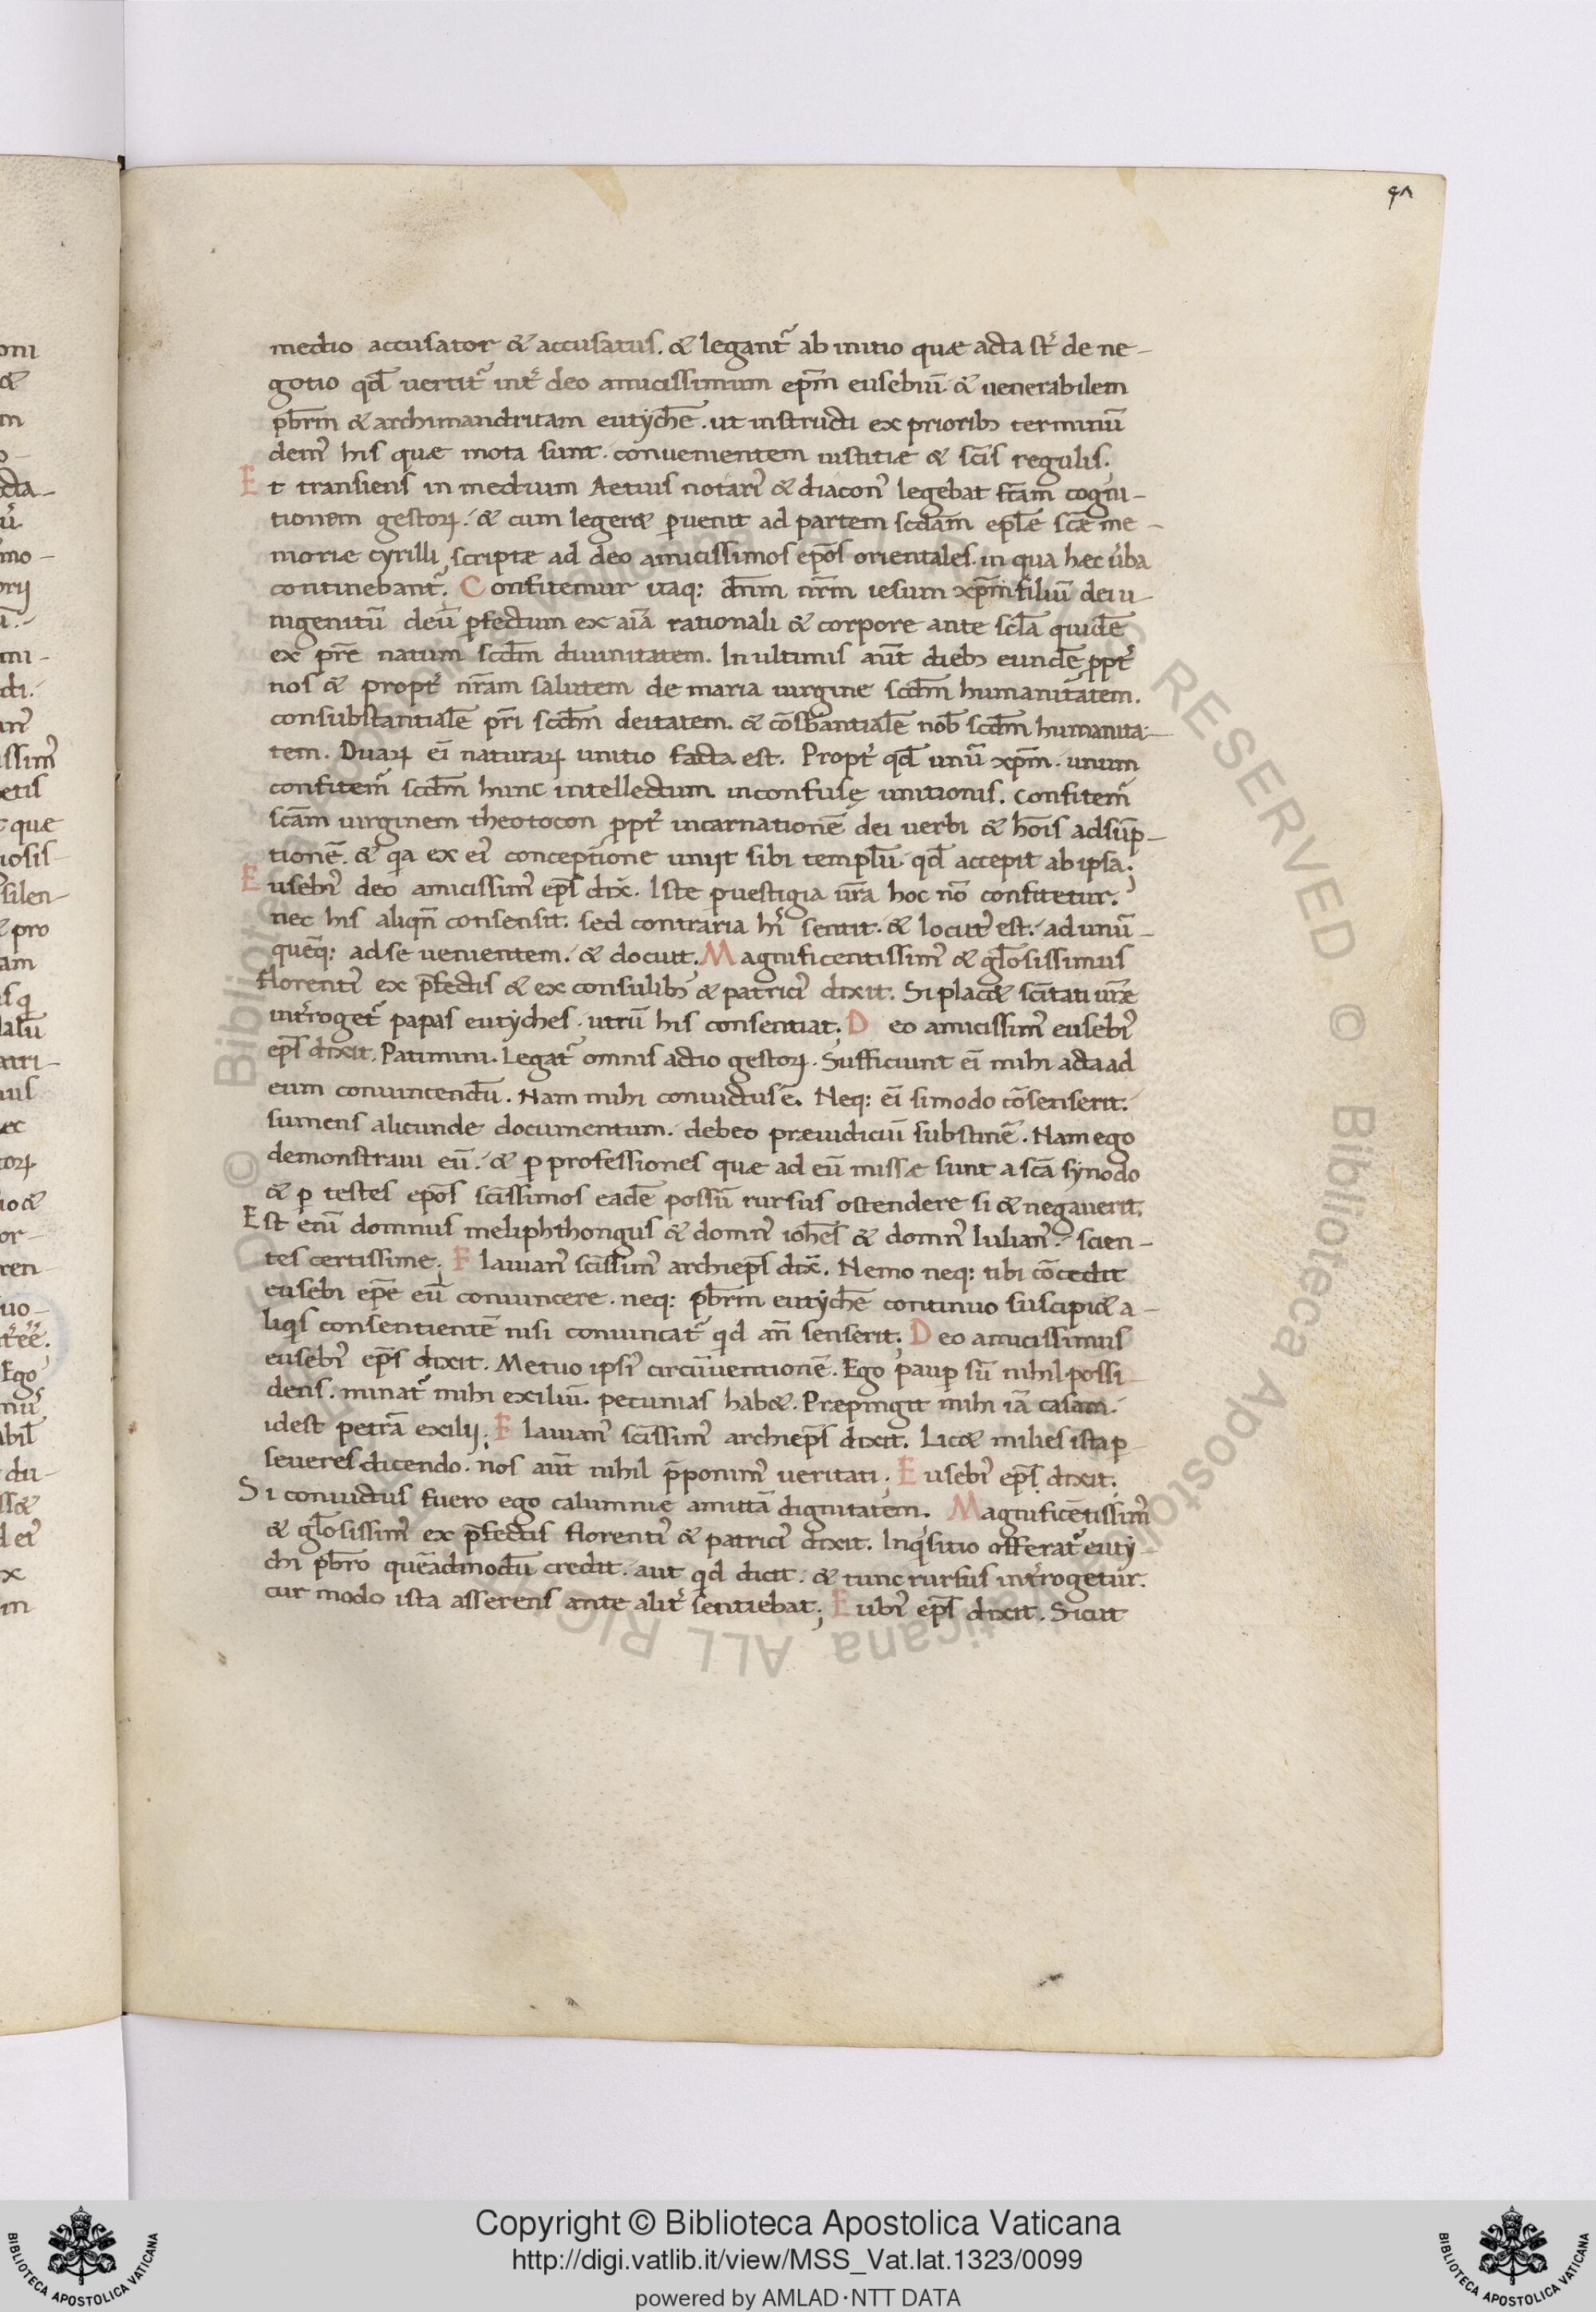 47
medio accusator & accusatus. & legant᷑ ab initio quæ acta st̄ de ne-
gotio qd̄ uertit᷑ int̄ deo amicissimum ep̄m eusebiū & uenerabilem
pbr̄m & archimandritam eutychē. ut instructi ex priorib; terminū
dem᷒ his quæ mota sunt. conuenientem iustitiæ & sc̄is regulis.
Et transiens in medium Aetius notari᷒ & diacon᷒ legebat fc̄am cogni-
tionem gestoꝝ. & cum leger& ꝑuenit ad partem scd̄am epl̄e sc̄æ me-
moriæ cyrilli scriptæ ad deo amicissimos ep̄os orientales. in qua hæc ūba
continebant᷑. Confitemur itaq: dn̄m nr̄m iesum xp̄m filiū dei u-
nigenitū deū ꝑfectum ex aīa rationali & corpore ante scl̄a quidē
ex pr̄e natum scdm̄ diuinitatem. In ultimis aūt dieb; eundē ꝓpt̄
nos & propt̄ nr̄am salutem de maria uirgine scdm̄ humanitatem.
consubstantialē pr̄i scdm̄ deitatem. & cōsbantialē nob̄ scdm̄ humanita-
tem. Duaꝝ ei̅ naturaꝝ unitio facta est. Propt̄ qd̄ unū xp̄m. unum
confitem᷒ scdm̄ hunc intellectum inconfusę unitionis. Confitem᷒
sc̄am uirginem theotocon ꝓpt̄ incarnationē dei uerbi & hōis adsūp-
tionē. & qa ex ei᷒ conceptione uniit sibi templū. qd̄ accepit ab ipsa.
Eusebi᷒ deo amicissim᷒ ep̄s dix̄. Iste ꝑ uestigia ur̄a hoc nō confitetur.
nec his aliqn̄ consensit. sed contraria hi᷒ sentit. & locut᷒ est. ad unū-
quēq: ad se uenientem. & docuit. Magnificentissim᷒ & gl̄osissimus
florenti᷒ ex p̄fectis & ex consulib; & patrici᷒ dixit. Si plac& sc̄itati ur̄æ
int̄roget᷑ papas eutyches. utrū his consentiat. Deo amicissim᷒ eusebi᷒
ep̄s dixit. Patimini. Legat᷑ omnis actio gestoꝝ. Sufficiunt ei̅ mihi acta ad
eum conuincendū. Nam mihi conuictus ē. Neq: ei̅ si modo cōsenserit.
sumens alicunde documentum. debeo præiudiciū substinē. Nam ego
demonstraui eū. & ꝑ professiones quæ ad eū missæ sunt a sc̄a synodo
& ꝑ testes ep̄os sc̄issimos eadē possū rursus ostendere si & negauerit.
Est enī domnus meliphthongus & domn᷒ ioh̄es & domn᷒ Iulian᷒. scien-
tes certissime. Flauian᷒ sc̄issim᷒ archiep̄s dix̄. Nemo neq: tibi cōcedit
eusebi ep̄e eū conuincere. neq: pbr̄m eutychē continuo suscipi& a-
liqs consentientē nisi conuincat᷑ qd an̄ senserit. Deo amicissimus
eusebi᷒ ep̄s dixit. Metuo ipsi᷒ circūuentionē. Ego pauꝑ sū nihil possi-
dens. minat᷑ mihi exiliū. pecunias hab&. Præpingit mihi iā casam.
idest petrā exilij. Flauian᷒ sc̄issim᷒ archiep̄s dixit. Lic& milies ista ꝑ-
seueres dicendo. nos aūt nihil p̄ponim᷒ ueritati. Eusebi᷒ ep̄s dixit.
Si conuictus fuero ego calumnie amittā dignitatem. Magnificētissim᷒
& gl̄osissim᷒ ex p̄fectis florenti᷒ & patrici᷒ dixit. Inqsitio offerat᷑ euty-
chi pbr̄o quēadmodū credit. aut qd dicit. & tunc rursus int̄rogetur.
cur modo ista asserens ante alit̄ sentiebat. Eubi᷒ ep̄s dixit. Sicut
Copyright © Biblioteca Apostolica Vaticana
http://digi.vatlib.it/view/MSS_Vat.lat.1323/0099
powered by AMLAD·NTT DATA